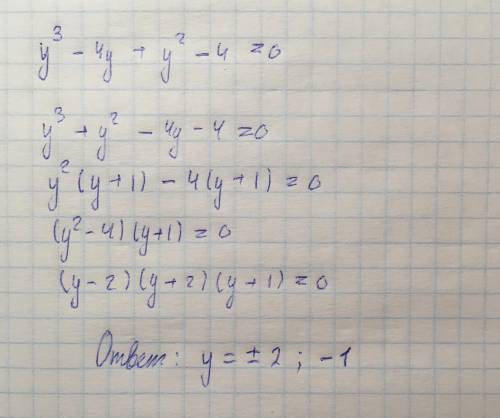 y³ - 4y + y² - 4 = 0
y³ + y² - 4y - 4 = 0
y² (y + 1) - 4 (y + 1) = 0
(y² - 4) (y + 1) = 0
(y - 2) (y + 2) (y + 1) = 0
Ответ: y = ± 2 ; - 1